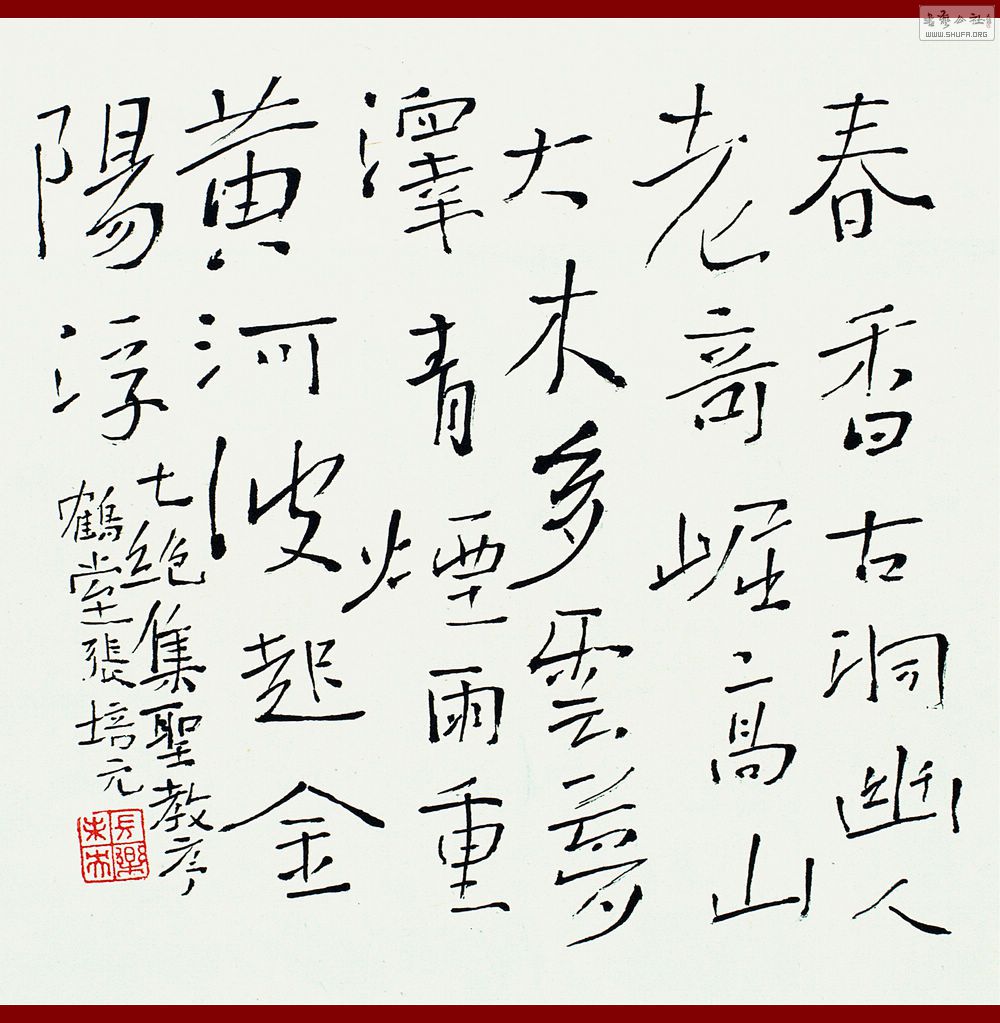 春香古洞幽人
老奇崛高山
大木多雲夢
澤青煙雨重
黃河波起金
陽浮
七絕集聖教序
鶴堂張培元
長樂未央
書藝公社
WWW.SHUFA.ORG